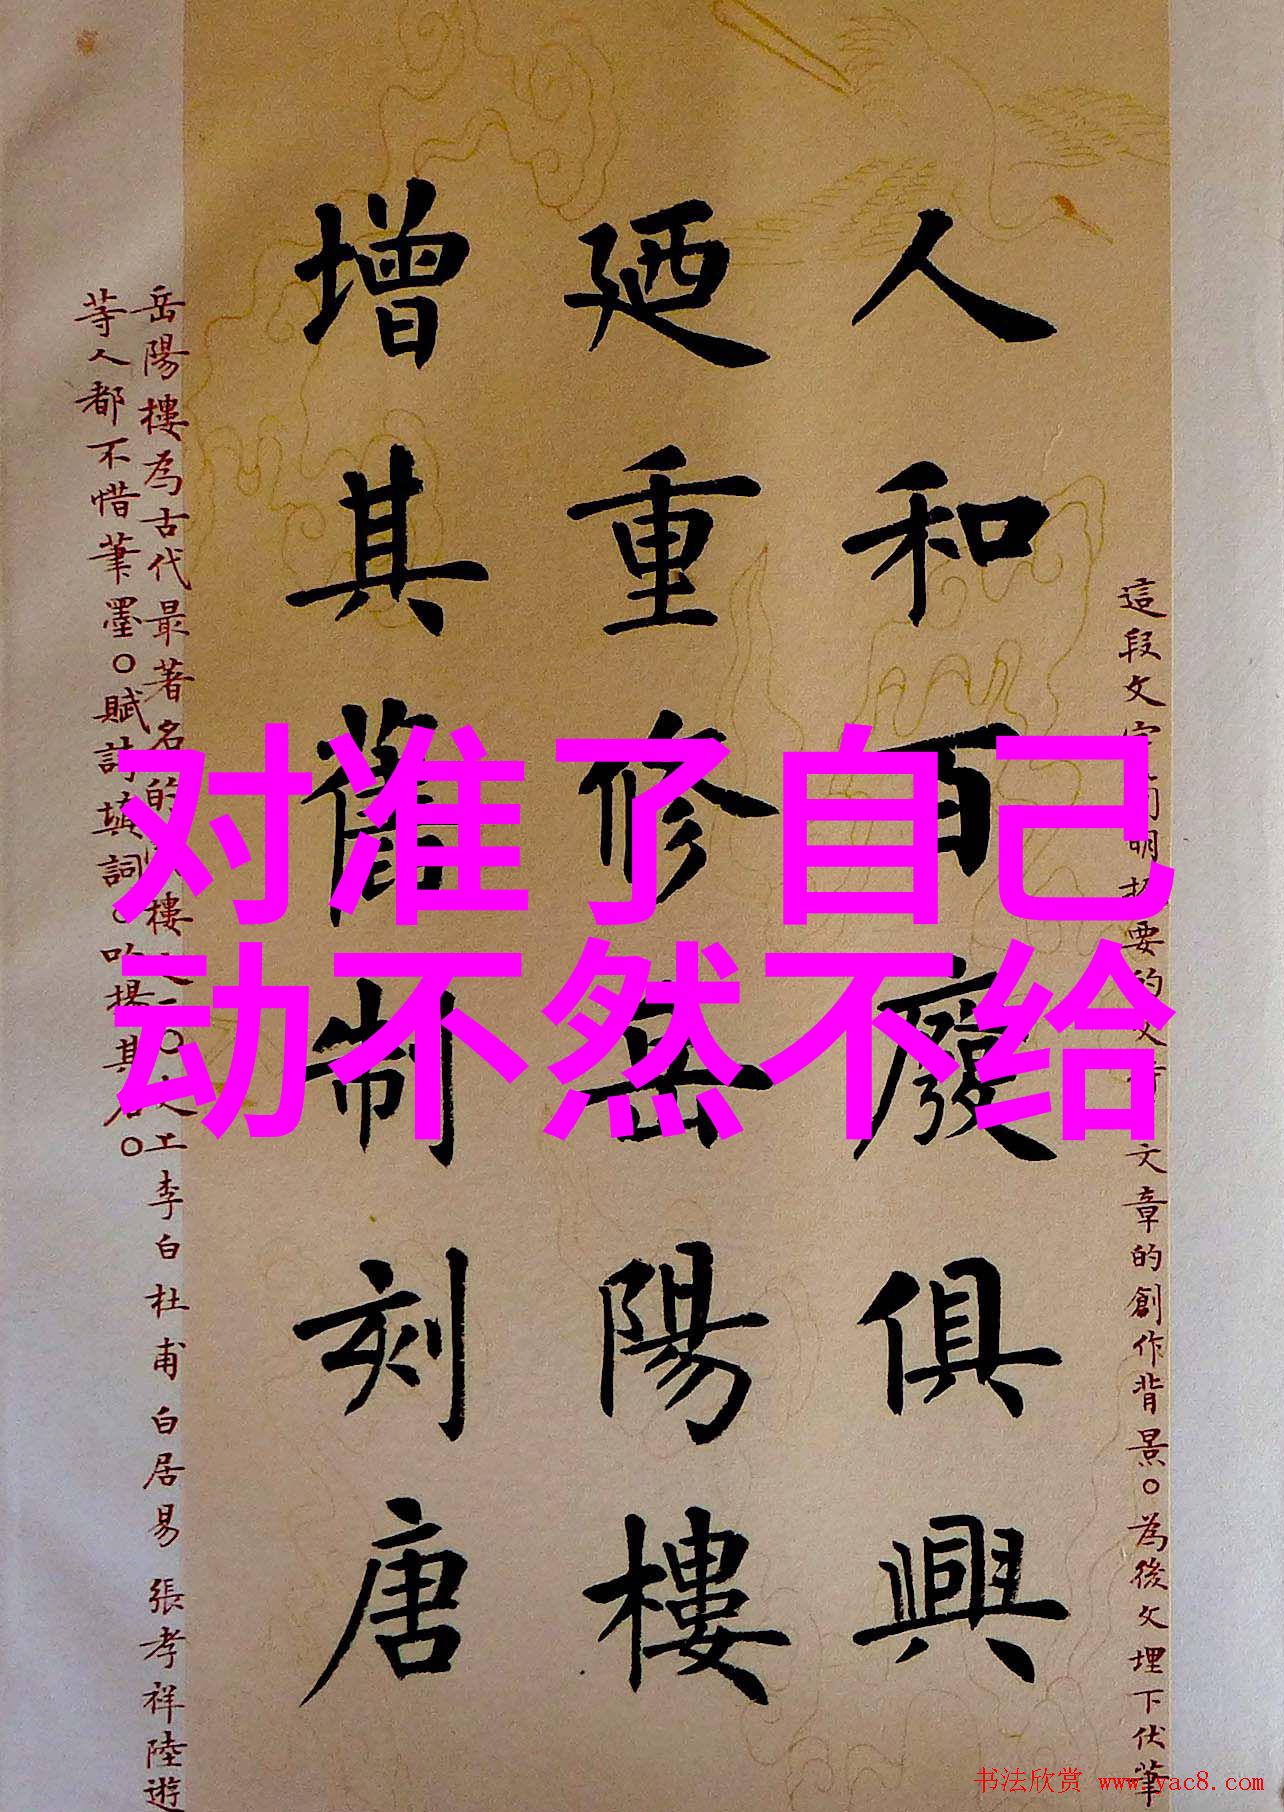 人和百廢俱興
廼重修岳陽樓
增其舊制刻唐
對准了自己
动不然不给
這段文字
明扼要的
文章的創作背景。為後文埋下伏筆
岳陽樓為古代最著名的
樓之一。
工李白杜甫白居易張孝祥陸遊
等人都不惜筆墨。賦詩填詞。
其名。
书法欣赏 www.yac8.com